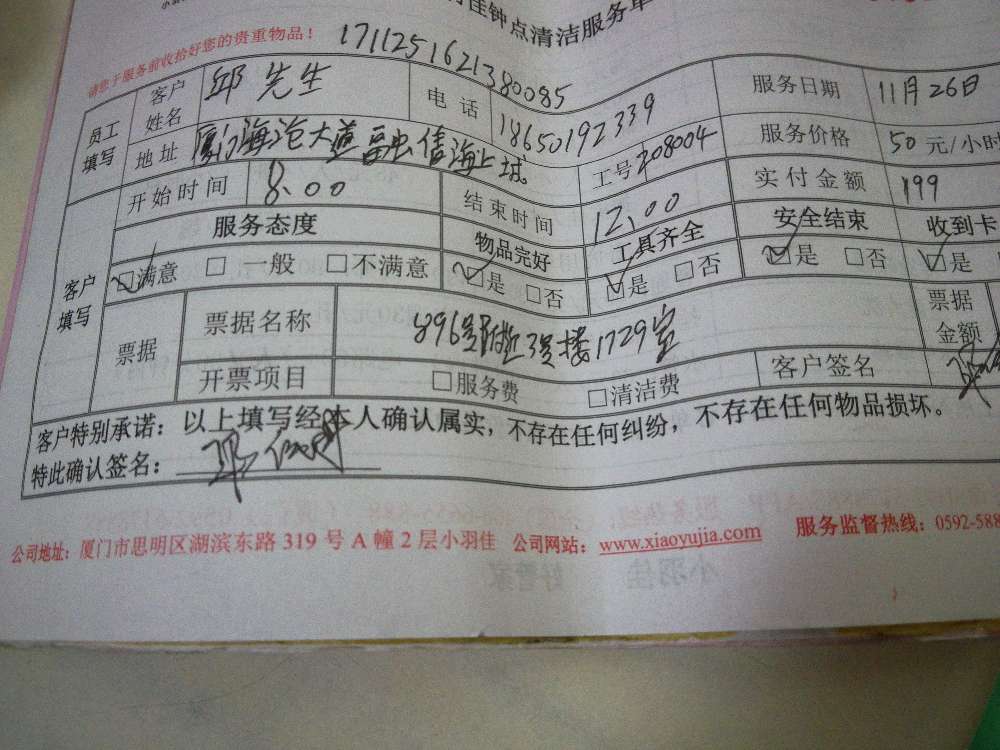 佳钟点清洁服务单
请您于服务前收拾好您的贵重物品！ 1711251621380085
员工填写 客户姓名 邱先生 电话 18650192339 服务日期 11月26日
地址 厦门海沧大道 信海上城 工号 208004 服务价格 50 元/小时
开始时间 8:00 结束时间 12:00 实付金额 199
客户填写 服务态度 物品完好 工具齐全 安全结束 收到卡
☑满意 □一般 □不满意 ☑是 □否 ☑是 □否 ☑是 □否 ☑是
票据 票据名称 896号附近3号楼1729室 票据金额
开票项目 □服务费 □清洁费 客户签名
客户特别承诺：以上填写经本人确认属实，不存在任何纠纷，不存在任何物品损坏。
特此确认签名：
公司地址：厦门市思明区湖滨东路 319 号 A 幢 2 层小羽佳 公司网站：www.xiaoyujia.com 服务监督热线：0592-588